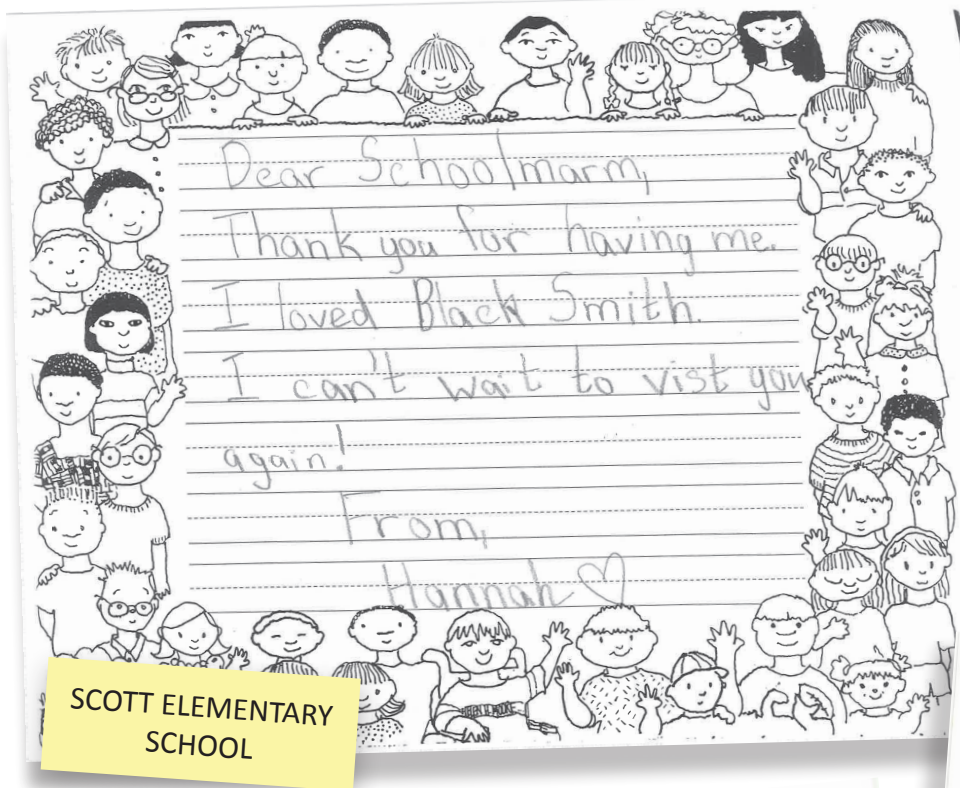 Dear Schoolmarm,
Thank you for having me.
I loved Black Smith.
I can't wait to vist you
again!
From,
Hannah
SCOTT ELEMENTARY
SCHOOL